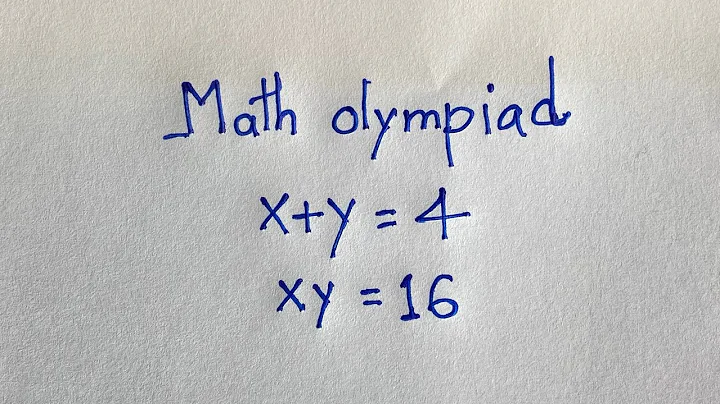 Math olympiad
x+y = 4
xy = 16